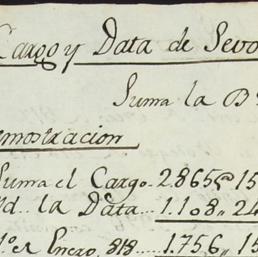 Cargo y Data de Sevo
Suma la B
mostracion
Suma el Cargo 2.865 15
Yd. la Data 1.108,, 24
Enero, 818 1.756,, 15